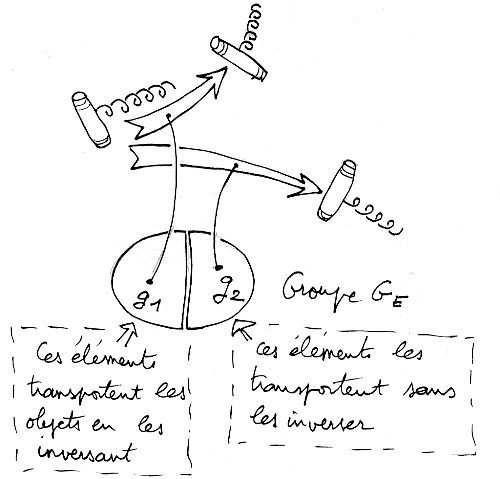 g1
g2
Groupe GE
Ces éléments
transportent les
objets en les
inversant
ces éléments les
transportent sans
les inverser